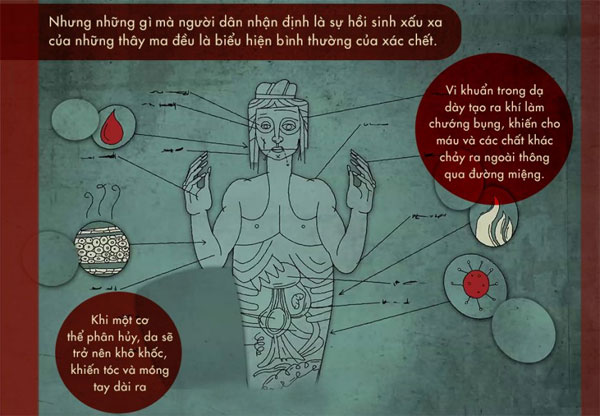 Nhưng những gì mà người dân nhận định là sự hồi sinh xấu xa
của những thây ma đều là biểu hiện bình thường của xác chết.
Vi khuẩn trong dạ
dày tạo ra khí làm
chướng bụng, khiến cho
máu và các chất khác
chảy ra ngoài thông
qua đường miệng.
Khi một cơ
thể phân hủy, da sẽ
trở nên khô khốc,
khiến tóc và móng
tay dài ra